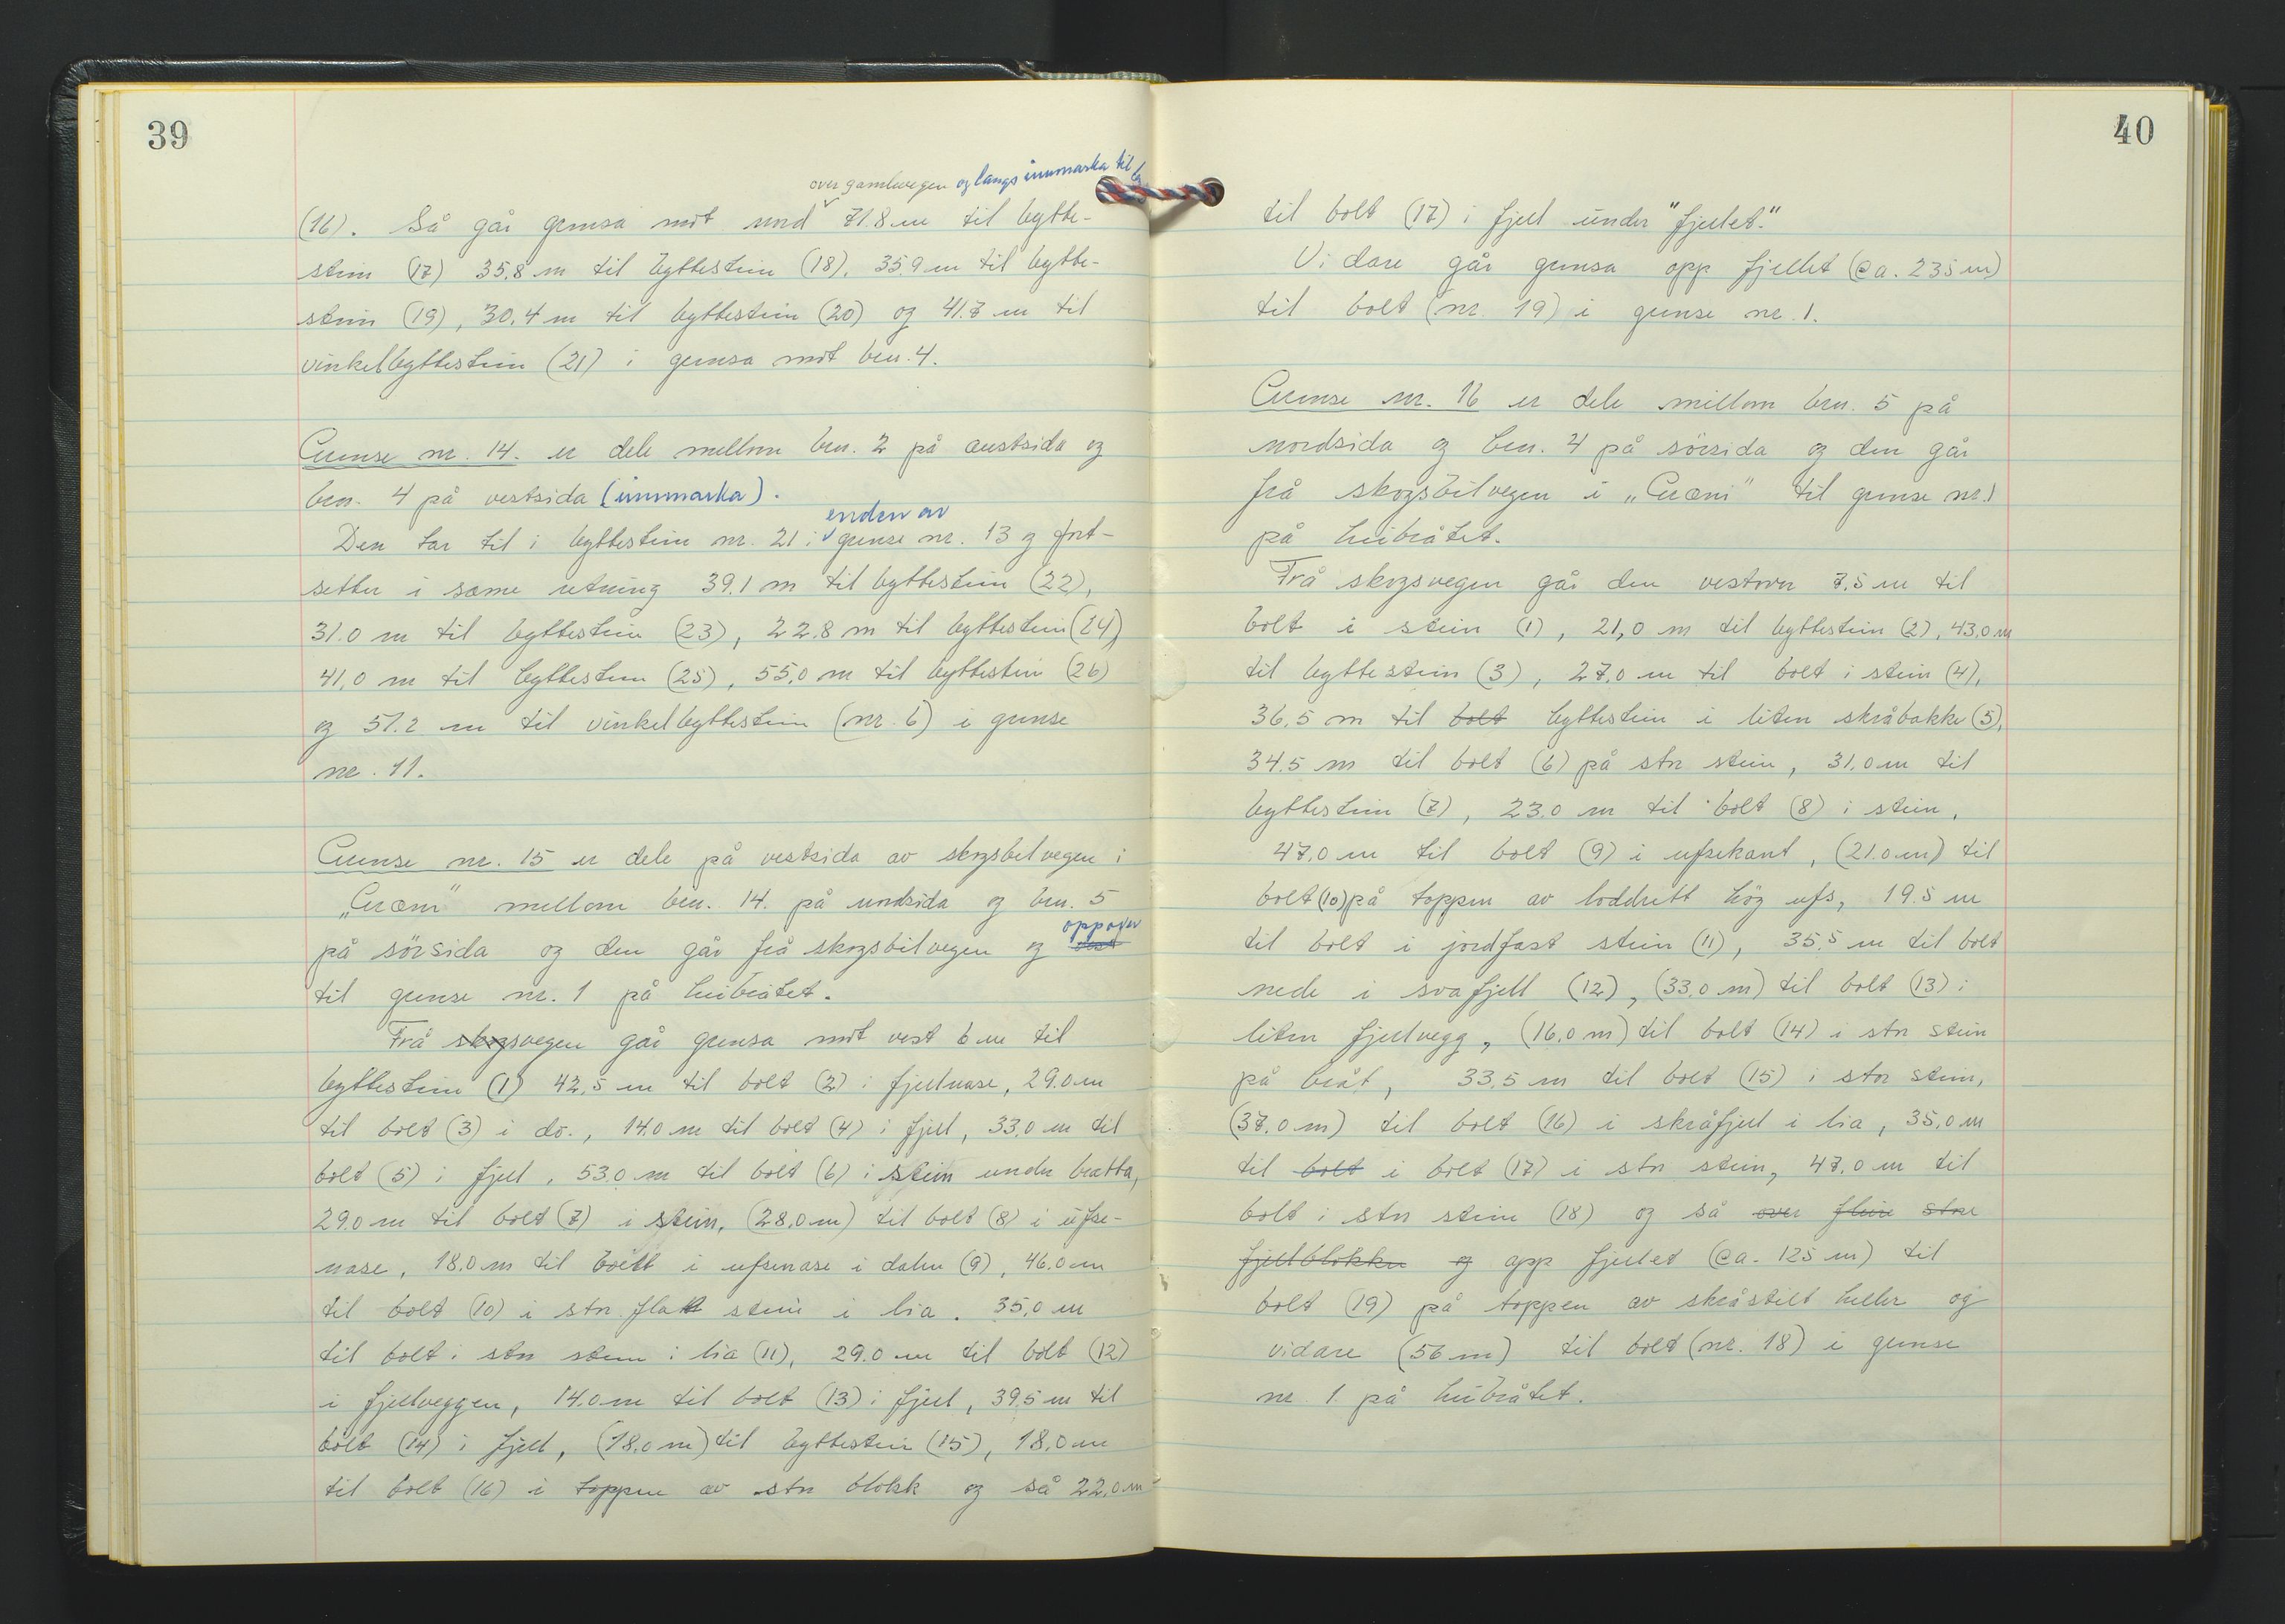 39
over gamlevegen og langs innmarka til
(16). Så går grensa mot nord 71.8 m til bytte-
stein (17) 35,8 m til byttestein (18), 35,9 m til bytte-
stein (19), 30,4 m til byttestein (20) og 41.7 m til
vinkelbyttestein (21) i grensa mot bnr. 4.
Grense nr. 14. er dele mellom bnr. 2 på austsida og
bnr. 4 på vestsida (innmarka).
enden av
Den tar til i byttestein nr. 21 i grense nr. 13 og fort-
setter i same retning 39.1 m til byttestein (22),
31.0 m til byttestein (23), 22,8 m til byttestein (24)
41,0 m til byttestein (25), 55,0 m til byttestein (26)
og 51.2 m til vinkelbyttestein (nr. 6) i grense
nr. 11.
Grense nr. 15 er dele på vestsida av skogsbilvegen i
„Græni" mellom bnr. 14. på nordsida og bnr. 5
oppover
på sörsida og den går frå skogsbilvegen og vest
til grense nr. 1 på heibråtet.
Frå skogsvegen går grensa mot vest 6 m til
byttestein (1) 42,5 m til bolt (2) i fjellnase, 29.0 m
til bolt (3) i do., 14.0 m til bolt (4) i fjell, 33,0 m til
bolt (5) i fjell, 53.0 m til bolt (6) i stein under bratta,
29.0 m til bolt (7) i stein, (28,0 m) til bolt (8) i ufse-
nase, 18.0 m til bolt i ufsenase i dalen (9), 46.0 m
til bolt (10) i stor flat stein i lia. 35,0 m
til bolt i stor stein i lia (11), 29.0 m til bolt (12)
i fjellveggen, 14.0 m til bolt (13) i fjell, 39,5 m til
bolt (14) i fjell, (18,0 m) til byttestein (15), 18,0 m
til bolt (16) i toppen av stor blokk og så 22,0 m
40
til bolt (17) i fjell under "fjellet".
Vidare går grensa opp fjellet (ca. 235 m)
til bolt (nr. 19) i grense nr. 1.
Grense nr. 16 er dele mellom bnr. 5 på
nordsida og bnr. 4 på sörsida og den går
frå skogsbilvegen i „Græni" til grense nr. 1
på heibråtet.
Frå skogsvegen går den vestover 7,5 m til
bolt i stein (1), 21,0 m til byttestein (2), 43,0 m
til byttestein (3), 27,0 m til bolt i stein (4),
36,5 m til bolt byttestein i liten skråbakke (5),
34.5 m til bolt (6) på stor stein, 31.0 m til
byttestein (7), 23.0 m til bolt (8) i stein,
47,0 m til bolt (9) i ufsekant, (21.0 m) til
bolt (10) på toppen av loddrett hög ufs, 19.5 m
til bolt i jordfast stein (11), 35,5 m til bolt
nede i svafjell (12), (33,0 m) til bolt (13) i
liten fjellvegg, (16,0 m) til bolt (14) i stor stein
på bråt, 33,5 m til bolt (15) i stor stein,
(37,0 m) til bolt (16) i skråfjell i lia, 35,0 m
til bolt i bolt (17) i stor stein, 47,0 m til
bolt i stor stein (18) og så over fleire store
fjellblokker og opp fjellet (ca. 125 m) til
bolt (19) på toppen av skråstilt heller og
vidare (56 m) til bolt (nr. 18) i grense
nr. 1 på heibråtet.